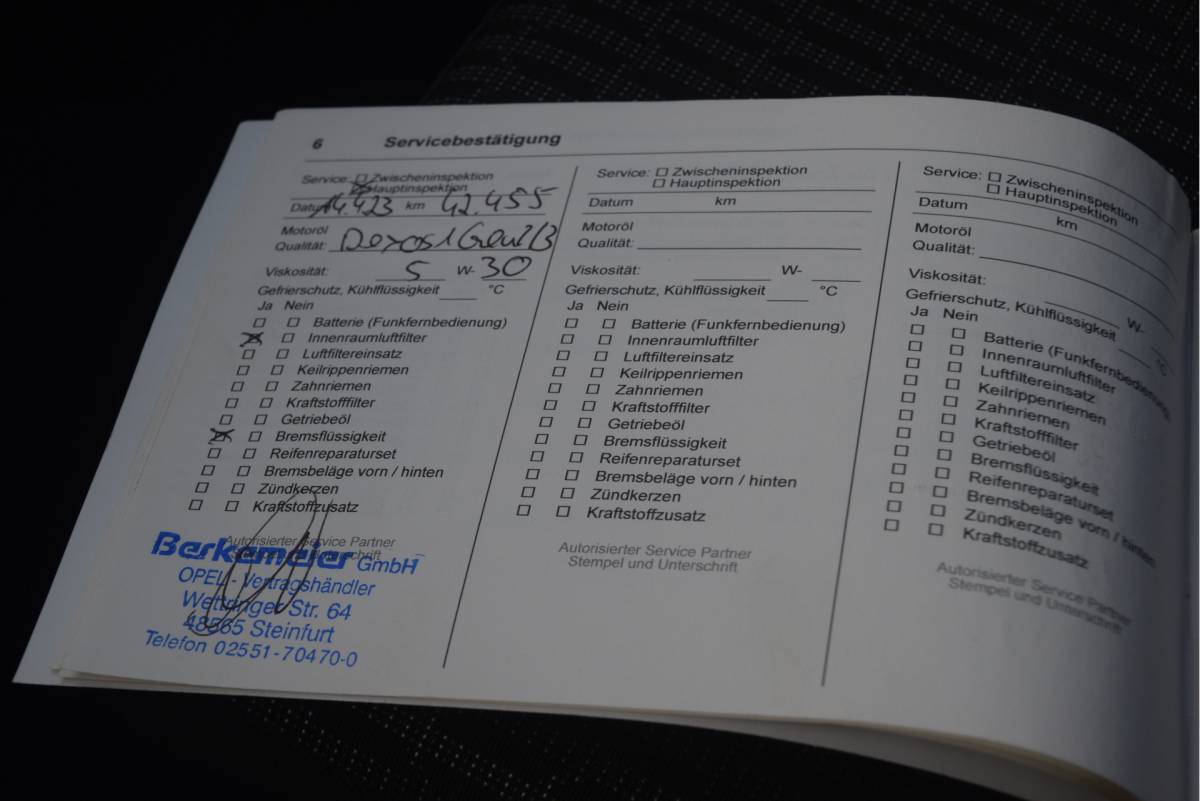 6 Servicebestätigung
Service: ☐ Zwischeninspektion
☒ Hauptinspektion
Datum 14.423 km 42.455
Motoröl
Qualität: Dexos 1 Gen2/3
Viskosität: 5 W- 30
Gefrierschutz, Kühlflüssigkeit ____ °C
Ja Nein
☐ ☐ Batterie (Funkfernbedienung)
☒ ☐ Innenraumluftfilter
☐ ☐ Luftfiltereinsatz
☐ ☐ Keilrippenriemen
☐ ☐ Zahnriemen
☐ ☐ Kraftstofffilter
☐ ☐ Getriebeöl
☒ ☐ Bremsflüssigkeit
☐ ☐ Reifenreparaturset
☐ ☐ Bremsbeläge vorn / hinten
☐ ☐ Zündkerzen
☐ ☐ Kraftstoffzusatz
Autorisierter Service Partner
Stempel und Unterschrift
Berkemeier GmbH
OPEL - Vertragshändler
Wettringer Str. 64
48565 Steinfurt
Telefon 02551-70470-0
Service: ☐ Zwischeninspektion
☐ Hauptinspektion
Datum km
Motoröl
Qualität:
Viskosität: ____ W- ____
Gefrierschutz, Kühlflüssigkeit ____ °C
Ja Nein
☐ ☐ Batterie (Funkfernbedienung)
☐ ☐ Innenraumluftfilter
☐ ☐ Luftfiltereinsatz
☐ ☐ Keilrippenriemen
☐ ☐ Zahnriemen
☐ ☐ Kraftstofffilter
☐ ☐ Getriebeöl
☐ ☐ Bremsflüssigkeit
☐ ☐ Reifenreparaturset
☐ ☐ Bremsbeläge vorn / hinten
☐ ☐ Zündkerzen
☐ ☐ Kraftstoffzusatz
Autorisierter Service Partner
Stempel und Unterschrift
Service: ☐ Zwischeninspektion
☐ Hauptinspektion
Datum km
Motoröl
Qualität:
Viskosität: ____ W- ____
Gefrierschutz, Kühlflüssigkeit ____ °C
Ja Nein
☐ ☐ Batterie (Funkfernbedienung)
☐ ☐ Innenraumluftfilter
☐ ☐ Luftfiltereinsatz
☐ ☐ Keilrippenriemen
☐ ☐ Zahnriemen
☐ ☐ Kraftstofffilter
☐ ☐ Getriebeöl
☐ ☐ Bremsflüssigkeit
☐ ☐ Reifenreparaturset
☐ ☐ Bremsbeläge vorn / hinten
☐ ☐ Zündkerzen
☐ ☐ Kraftstoffzusatz
Autorisierter Service Partner
Stempel und Unterschrift